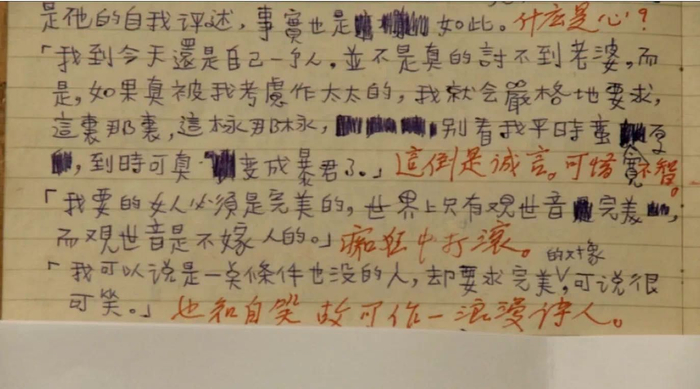 是他的自我评述，事實也是如此。什么是心？
「我到今天還是自己一个人，並不是真的討不到老婆，而
是，如果真被我考慮作太太的，我就会嚴格地要求，
這裏那裏，這样那样，别看我平時蛮
，到時可真变成暴君了。」這倒是诚言。可惜不智。
「我要的女人必須是完美的，世界上只有观世音完美，
而观世音是不嫁人的。」痴狂中打滚。
的对象
「我可以说是一点條件也没的人，却要求完美，可说很
可笑。」也知自笑 故可作一浪漫诗人。